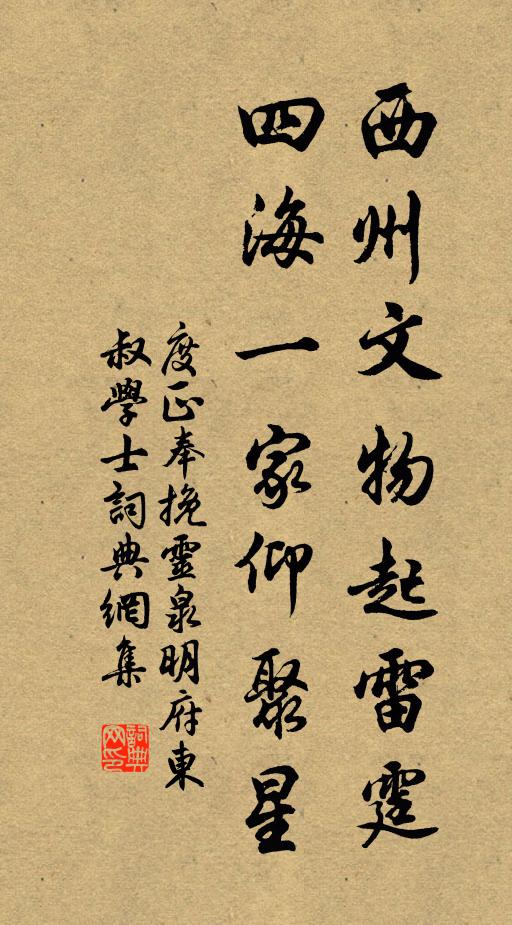 西州文物起雷霆
四海一家仰聚星
度正奉挽靈泉明府東
叔學士詞典網集
詞典網印